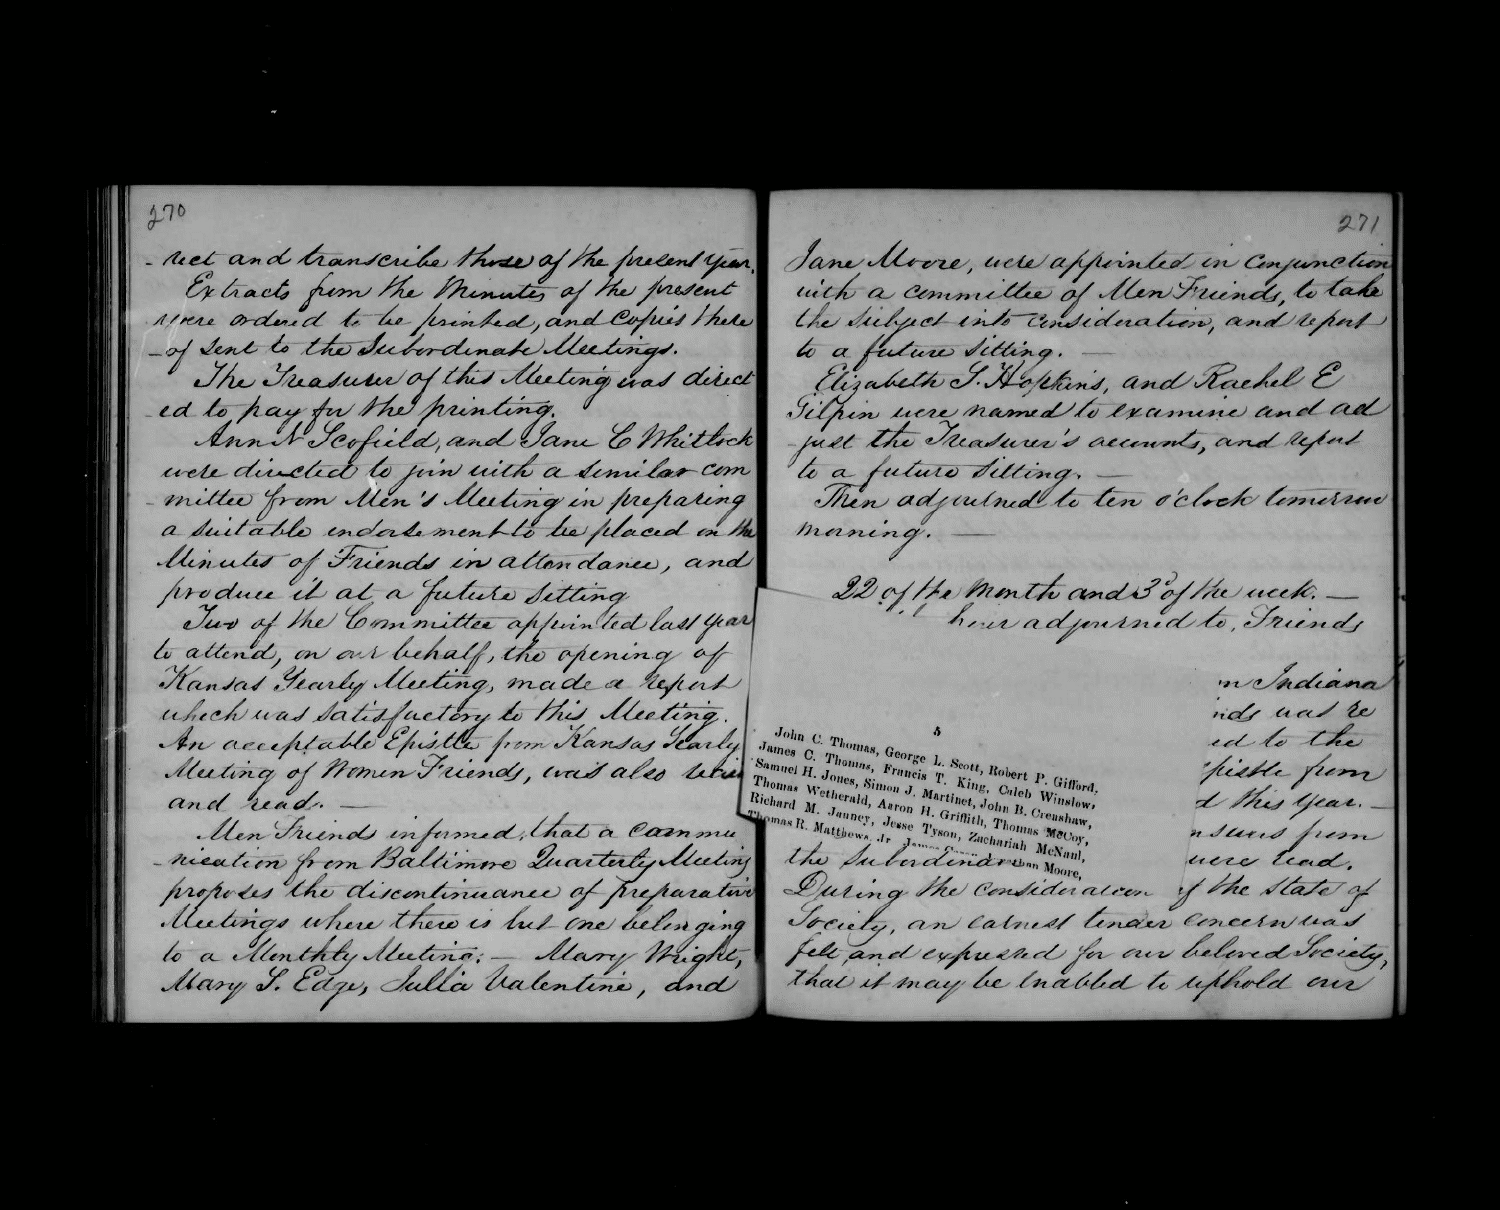 270
- rect and transcribe those of the present year.
Extracts from the Minutes of the present
were ordered to be printed, and copies there
- of sent to the Subordinate Meetings.
The Treasurer of this Meeting was direct
- ed to pay for the printing.
Ann N Scofield, and Jane C Whitlock
were directed to join with a similar com
- mittee from Men's Meeting in preparing
a suitable endorsement to be placed on the
Minutes of Friends in attendance, and
produce it at a future sitting
Two of the Committee appointed last year
to attend, on our behalf, the opening of
Kansas Yearly Meeting, made a report
which was satisfactory to this Meeting.
An acceptable Epistle from Kansas Yearly
Meeting of Women Friends, was also
and read. —
Men Friends informed, that a commu
- nication from Baltimore Quarterly Meeting
proposes the discontinuance of preparative
Meetings where there is but one belonging
to a Monthly Meeting. — Mary Wright,
Mary S. Edge, Julia Valentine, and
271
Jane Moore, were appointed in conjunction
with a committee of Men Friends, to take
the subject into consideration, and report
to a future sitting. —
Elizabeth T. Hopkins, and Rachel E
Gilpin were named to examine and ad
- just the Treasurer's accounts, and report
to a future sitting. —
Then adjourned to ten o'clock tomorrow
morning. —
22 of the month and 3d of the week. —
hour adjourned to, Friends
n Indiana
nds was re
ed to the
pistle from
d this year. —
nswers from
the Subordina were read.
During the consideration of the state of
Society, an earnest tender concern was
felt and expressed for our beloved Society,
that it may be enabled to uphold our
5
John C. Thomas, George L. Scott, Robert P. Gifford,
James C. Thomas, Francis T. King, Caleb Winslow,
Samuel H. Jones, Simon J. Martinet, John B. Crenshaw,
Thomas Wetherald, Aaron H. Griffith, Thomas McCoy,
Richard M. Janney, Jesse Tyson, Zachariah McNaul,
Thomas R. Matthews, Jr. Moore,